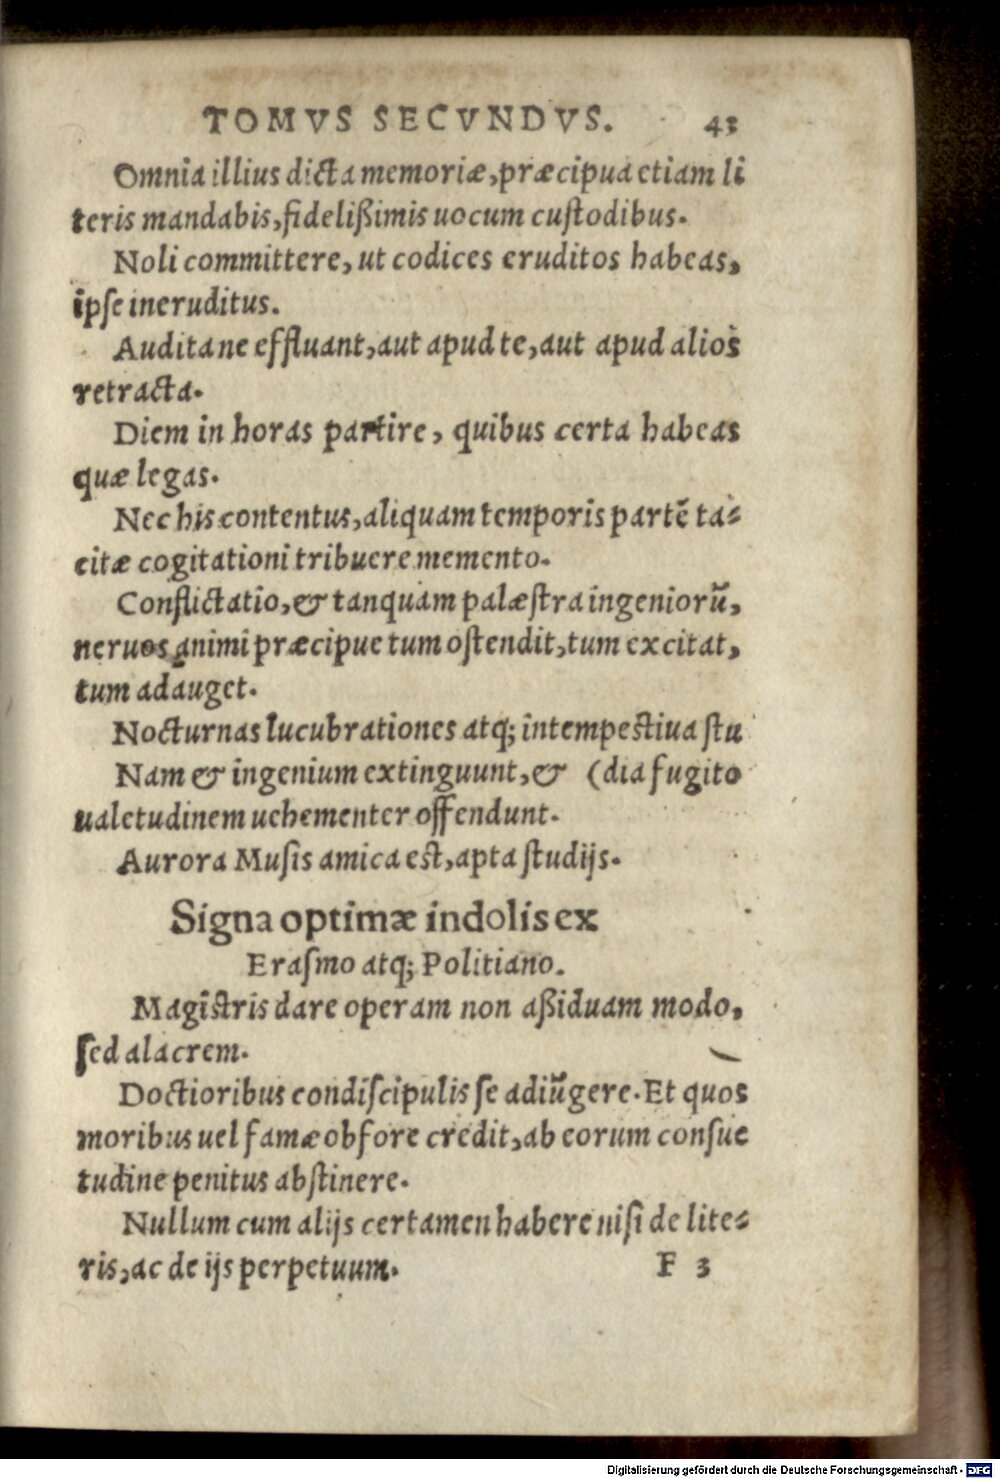 TOMVS SECVNDVS. 43
Omnia illius dicta memoriæ, præcipua etiam li
teris mandabis, fidelißimis uocum custodibus.
Noli committere, ut codices eruditos habeas,
ipse ineruditus.
Audita ne effluant, aut apud te, aut apud alios
retracta.
Diem in horas partire, quibus certa habeas
quæ legas.
Nec his contentus, aliquam temporis partẽ ta-
citæ cogitationi tribuere memento.
Conflictatio, & tanquam palæstra ingeniorũ,
neruos animi præcipue tum ostendit, tum excitat,
tum adauget.
Nocturnas lucubrationes atq; intempestiua stu
Nam & ingenium extinguunt, & (dia fugito
ualetudinem uehementer offendunt.
Aurora Musis amica est, apta studijs.
Signa optimæ indolis ex
Erasmo atq; Politiano.
Magistris dare operam non aßiduam modo,
sed alacrem.
Doctioribus condiscipulis se adiũgere. Et quos
moribus uel famæ obfore credit, ab eorum consue
tudine penitus abstinere.
Nullum cum alijs certamen habere nisi de lite-
ris, ac de ijs perpetuum. F 3
Digitalisierung gefördert durch die Deutsche Forschungsgemeinschaft - DFG